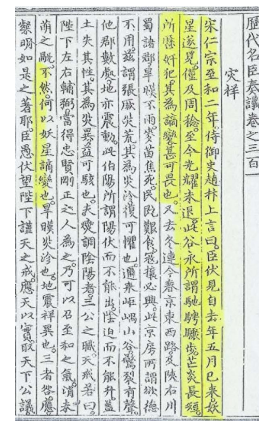 歷代名臣奏議卷之三百
灾祥
宋仁宗至和二年侍御史趙抃上言曰臣伏見自去年五月已來妖
星遂見僅及周稔至今光耀未退此谷永所謂馳騁驟步芒炎長短
所歷奸犯其為謫變甚可畏也又去冬連今春京東西路及陝右川
蜀諸郡旱暵不雨麥苗焦死民既艱食寇攘必興此京房所謂欲德
不用茲謂張厥災荒其為災沴復可懼也邇來岠嵎山谷驚裂有聲
他郡數處地亦震動此伯陽所謂陽伏而不能出陰迫而不能升蓋
土失其性其為災異益可駭也夫燮調陰陽者三公之職天戒若曰
陛下左右輔弼當得忠賢剛正之人為之乃可以召至和之氣消未
萌之眚不然何以妖星謫變也旱暵災沴也地震祥異也三者咎應
繁明如是之著耶臣愚伏望陛下謹天之戒應天以實取天下公議